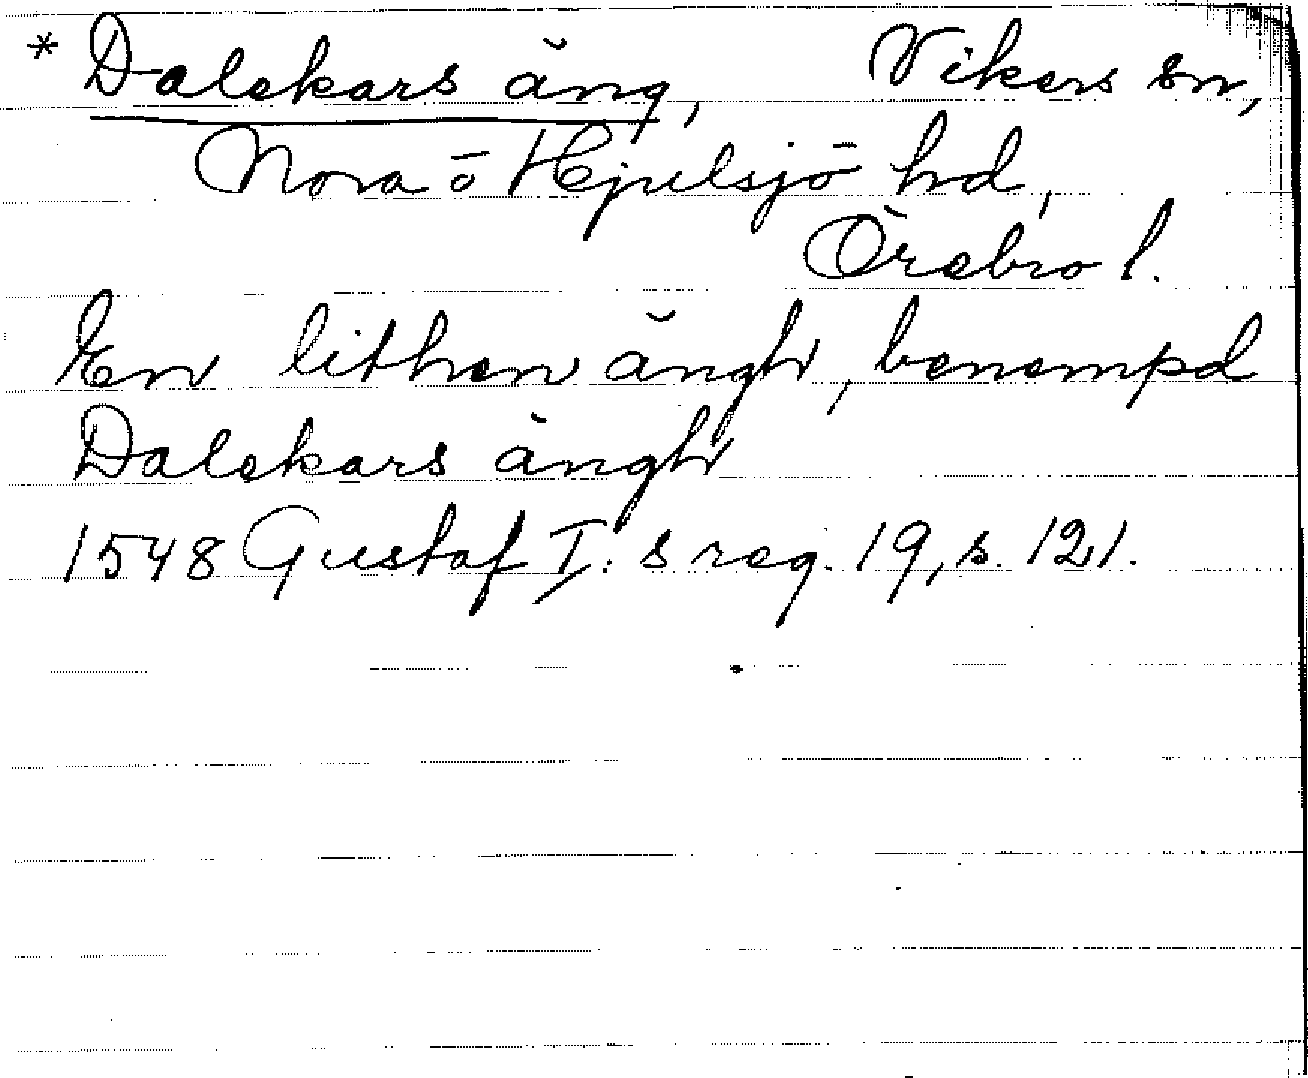 * Dalekars äng, Vikers sn,
Nora o Hjulsjö hd,
Örebro l.
En lithen ängh, benempd
Dalekars ängh
1548 Gustaf I:s reg. 19, s. 121.